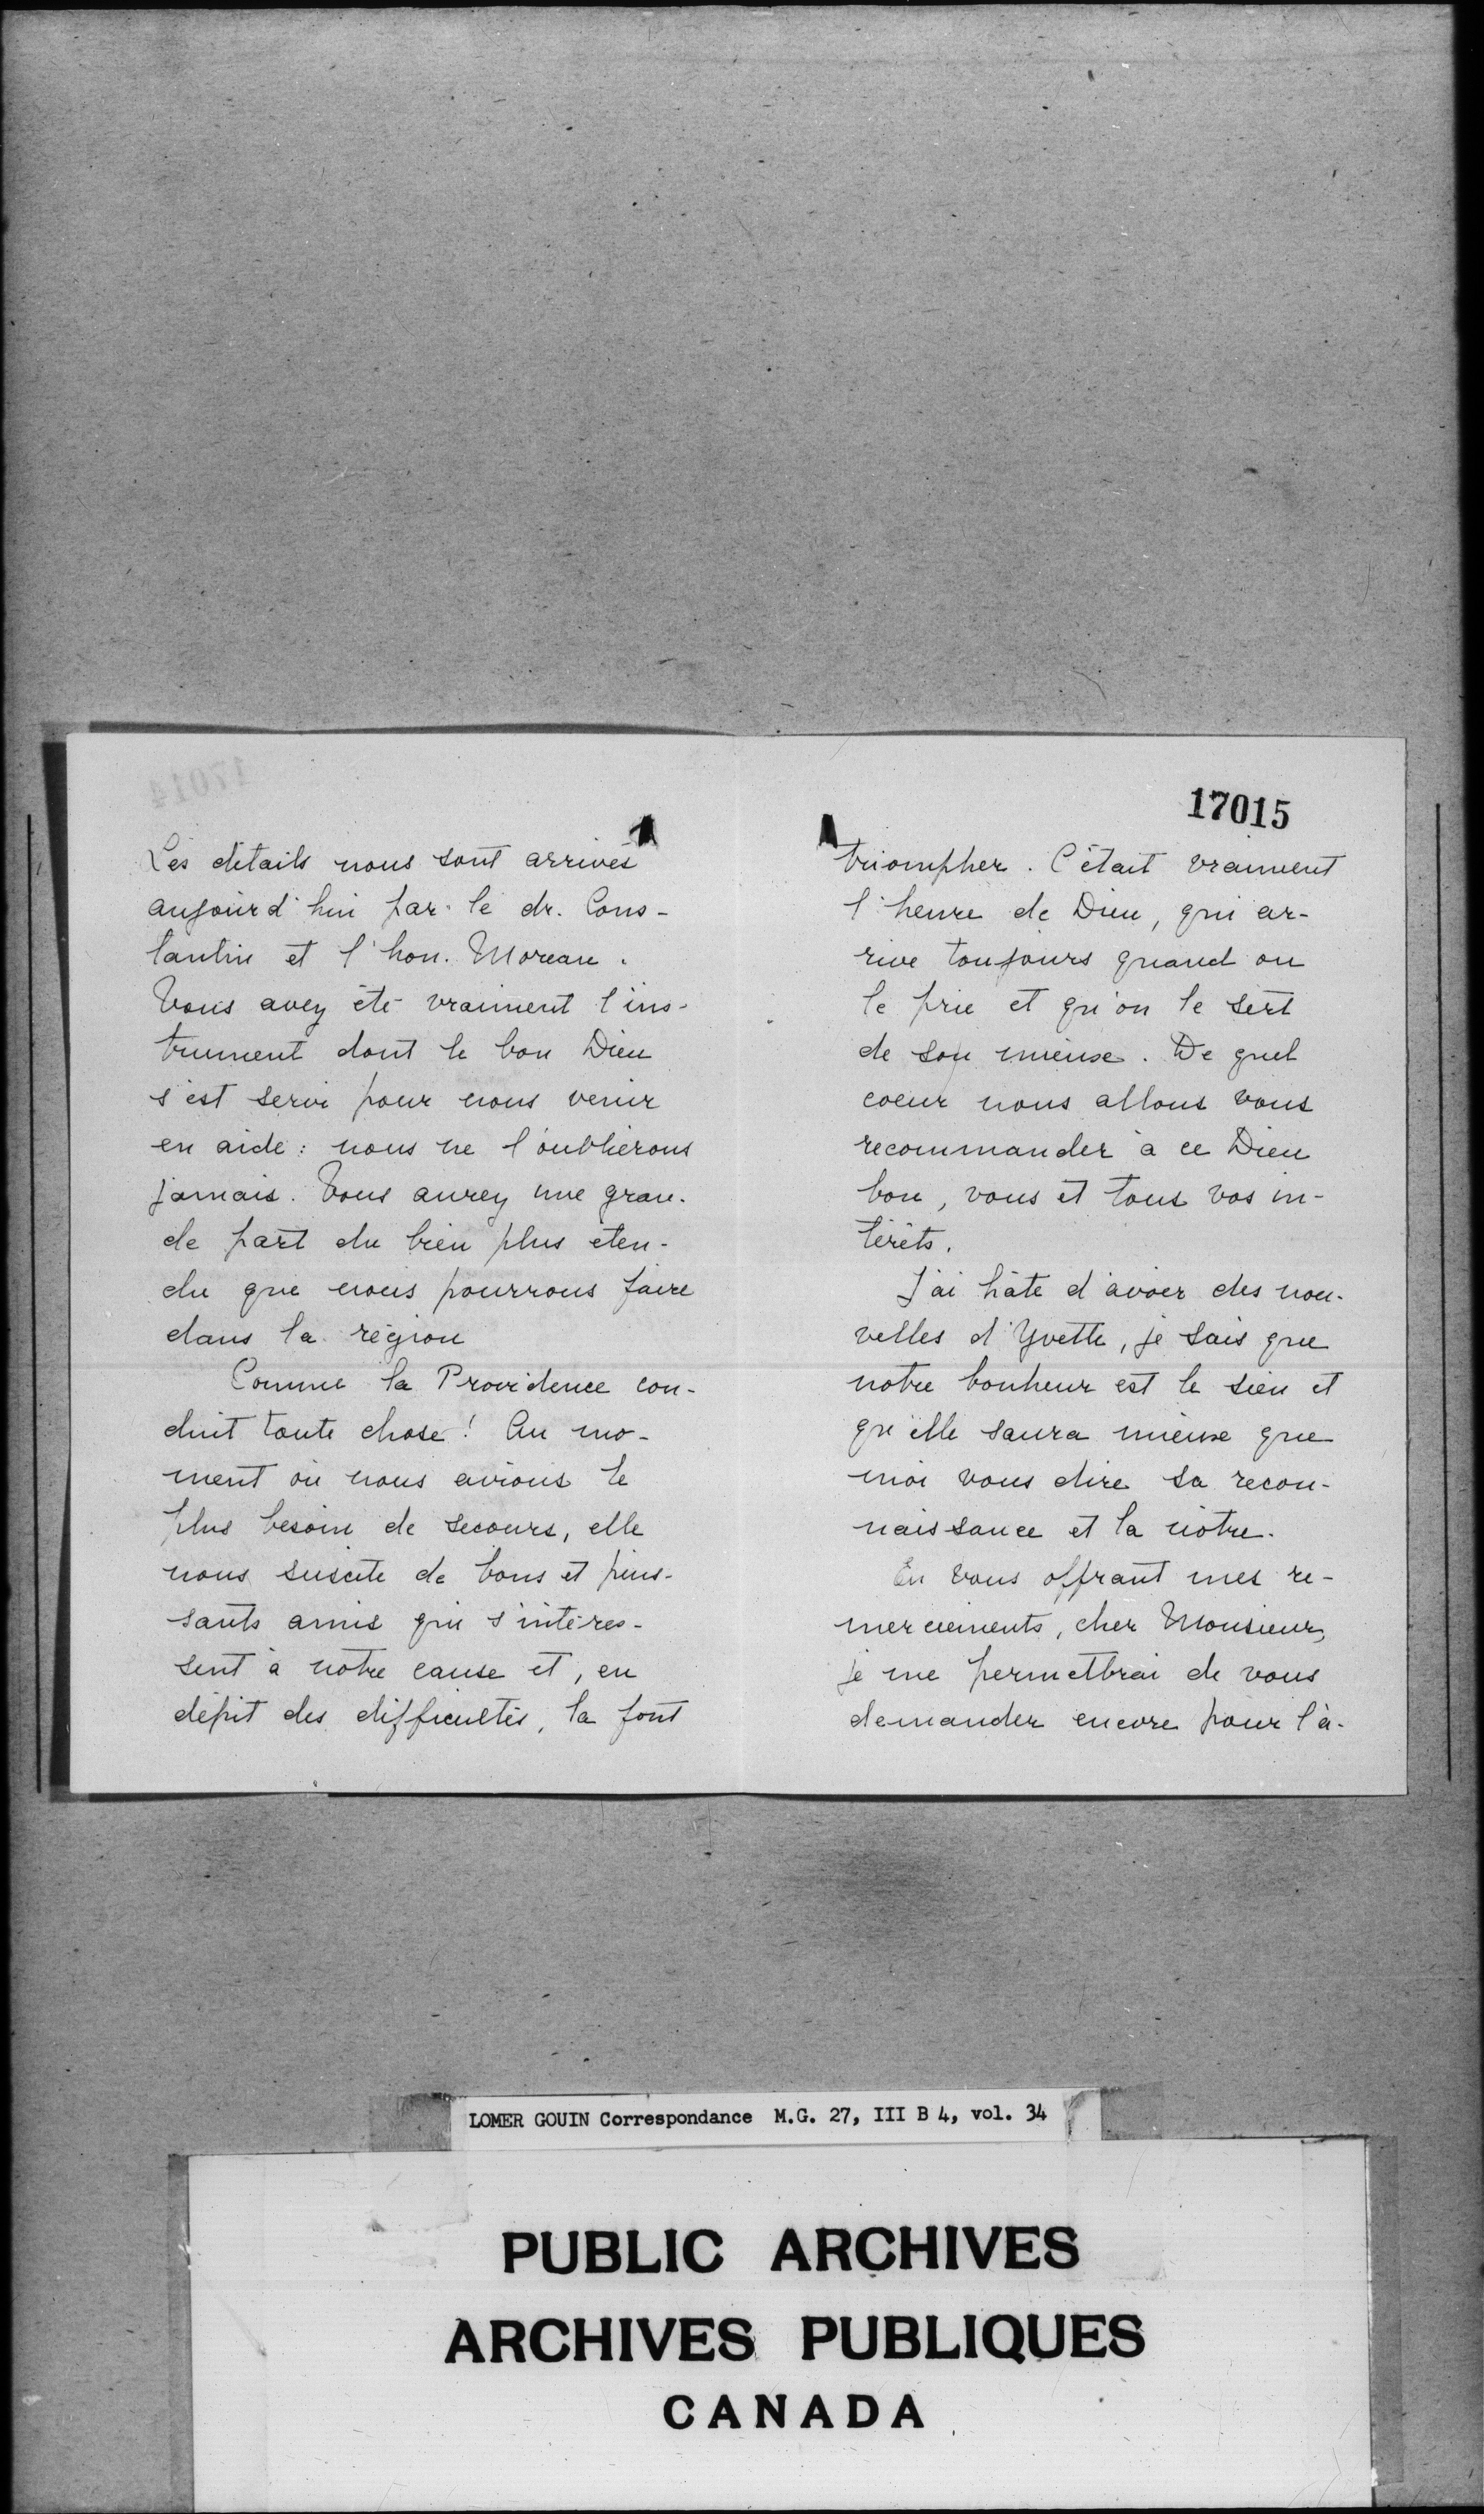 Les détails nous sont arrivés
aujourd'hui par le dr. Cons-
tantin et l'hon. Moreau.
Vous avez été vraiment l'ins-
trument dont le bon Dieu
s'est servi pour nous venir
en aide: nous ne l'oublierons
jamais. Vous aurez une gran-
de part du bien plus éten-
du que nous pourrons faire
dans la région
Comme la Providence con-
duit toute chose! Au mo-
ment où nous avions le
plus besoin de secours, elle
nous suscite de bons et puis-
sants amis qui s'intéres-
sent à notre cause et, en
dépit des difficultés, la font
17015
triompher. C'était vraiment
l'heure de Dieu, qui ar-
rive toujours quand on
le prie et qu'on le sert
de son mieux. De quel
coeur nous allons vous
recommander à ce Dieu
bon, vous et tous vos in-
térêts.
J'ai hâte d'avoir des nou-
velles d'Yvette, je sais que
notre bonheur est le sien et
qu'elle saura mieux que
moi vous dire sa recon-
naissance et la nôtre.
En vous offrant mes re-
merciements, cher Monsieur,
je me permettrai de vous
demander encore pour l'a-
LOMER GOUIN Correspondance M.G. 27, III B 4, vol. 34
PUBLIC ARCHIVES
ARCHIVES PUBLIQUES
CANADA